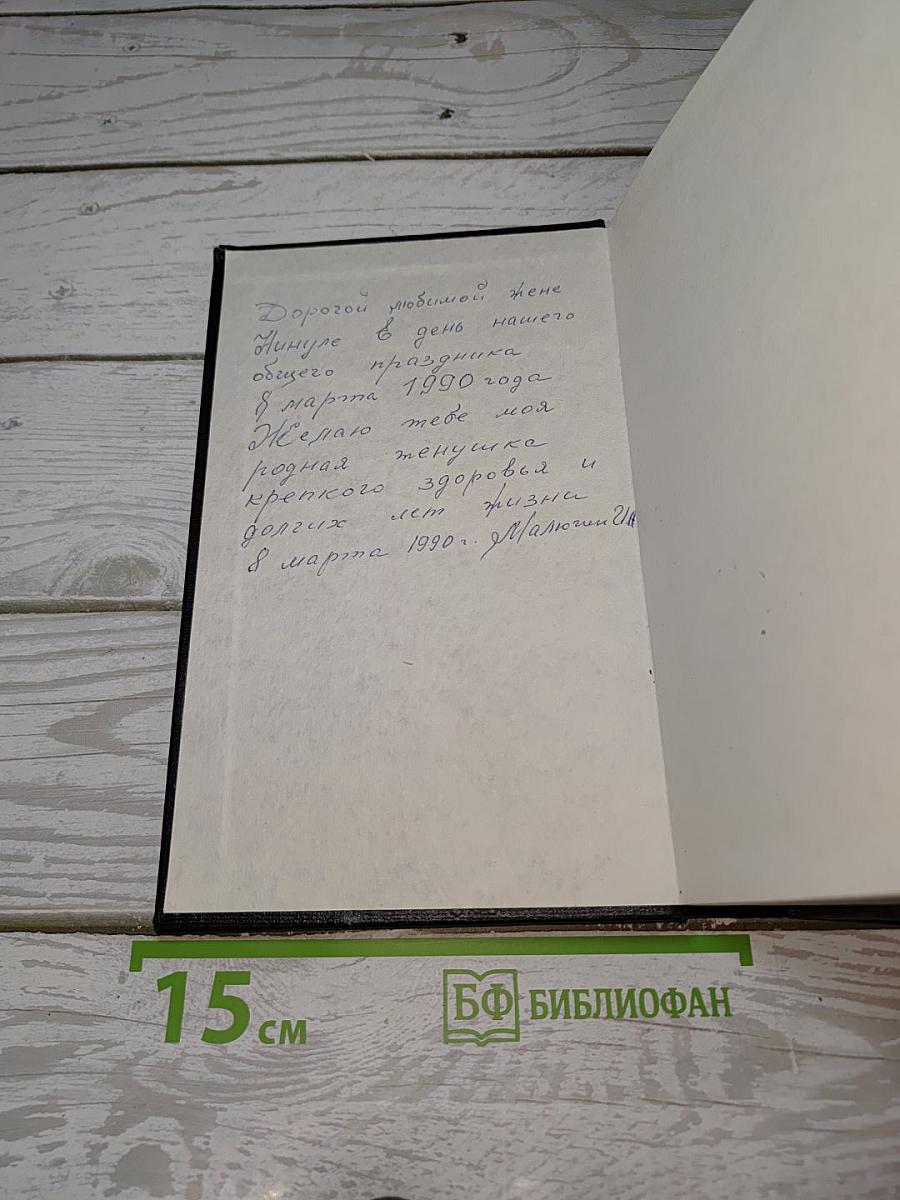 Дорогой любимой жене
Нинуле в день нашего
общего праздника
8 марта 1990 года
Желаю тебе моя
родная женушка
крепкого здоровья и
долгих лет жизни
8 марта 1990 г. Малюгин
15 см
БФ БИБЛИОФАН